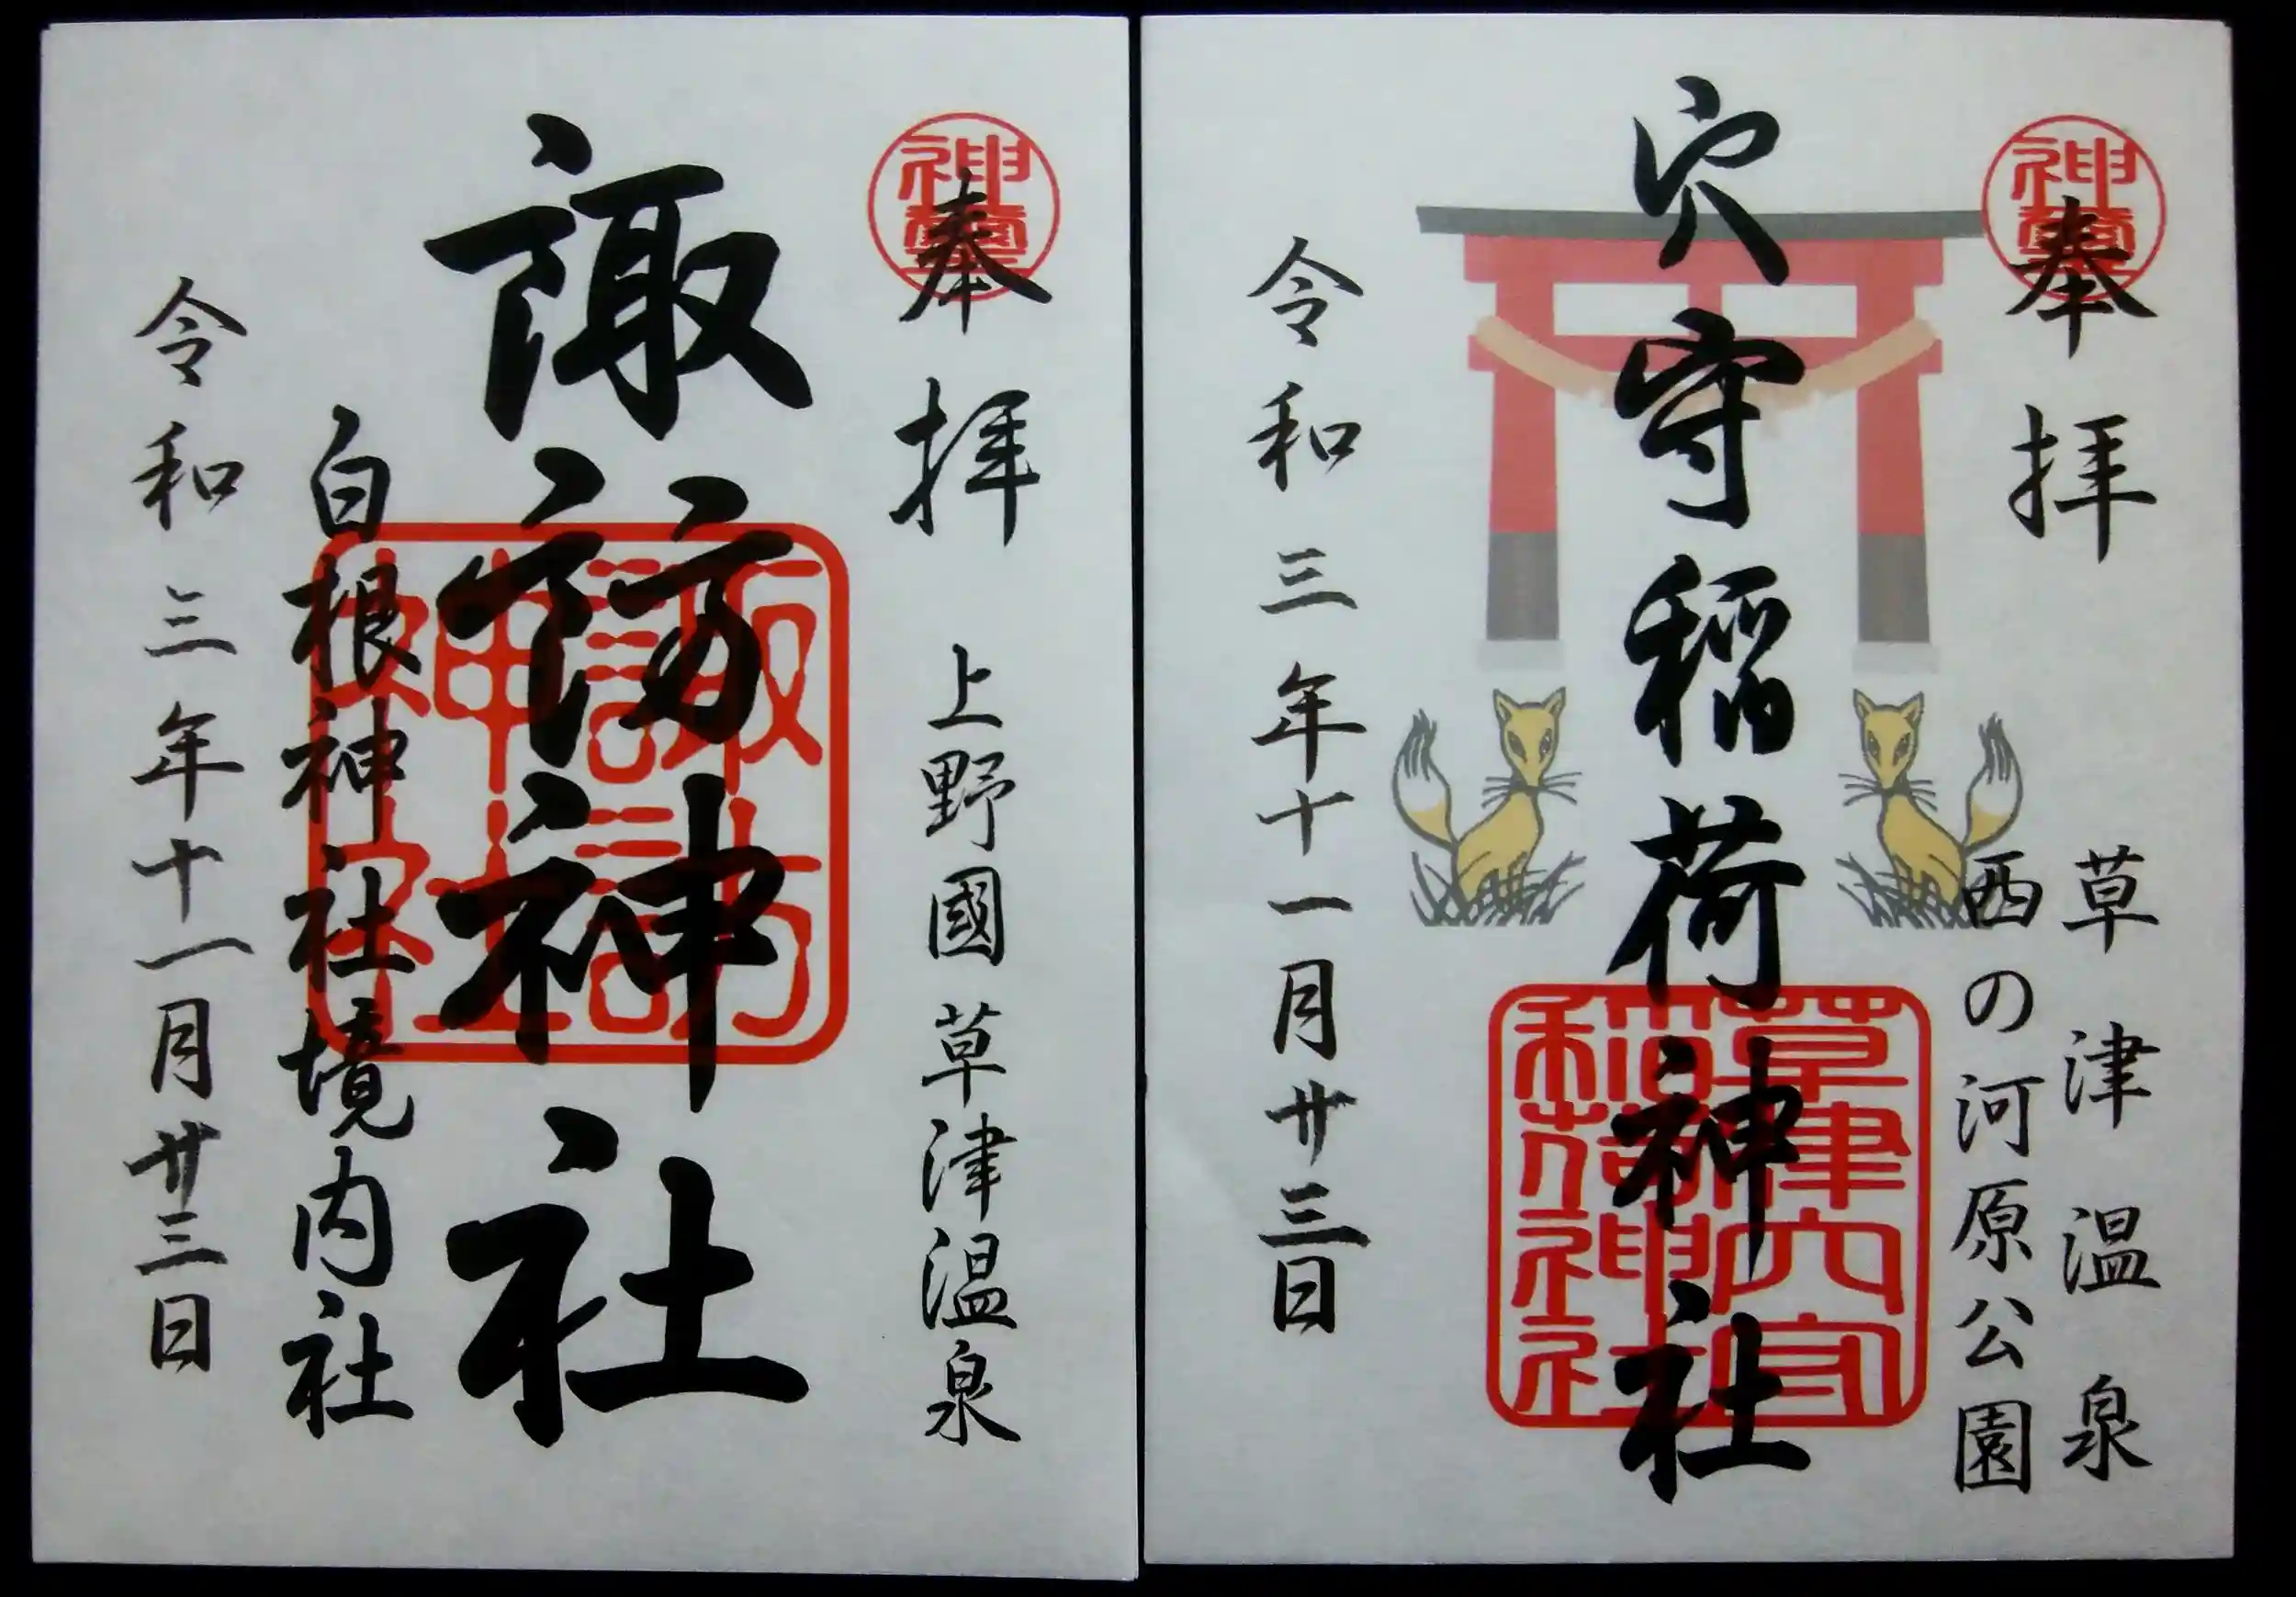 奉拝
草津温泉
西の河原公園
穴守稲荷神社
草津穴守
稲荷神社
令和三年十一月廿三日
奉拝
上野國草津温泉
諏訪神社
諏訪
白根神社境内社
令和三年十一月廿三日